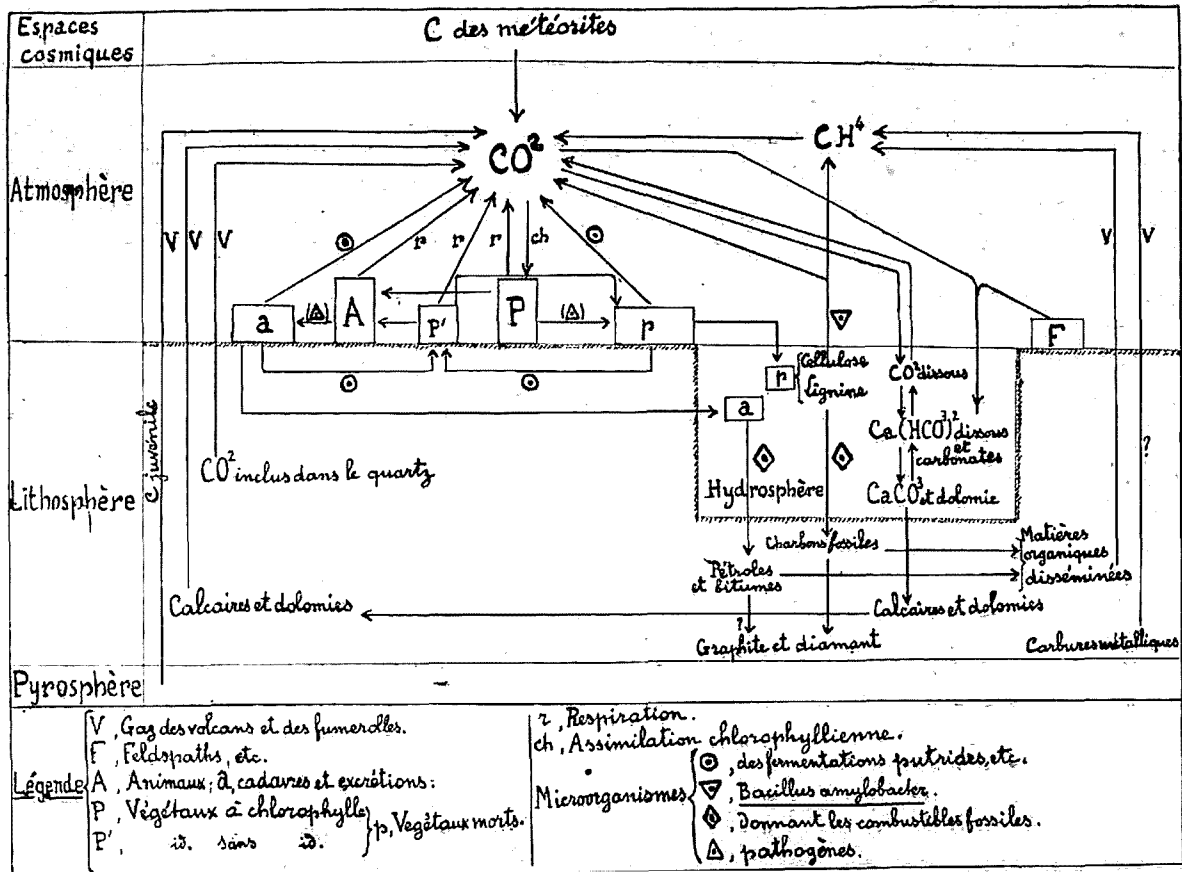 Espaces
cosmiques
C des météorites
Atmosphère
CO²
CH⁴
V V V
r r r ch
V V
a
(△)
A
P'
P
(△)
r
F
p
Cellulose
Lignine
a
CO² dissous
Ca(HCO³)² dissous
et
carbonates
CaCO³ et dolomie
?
Lithosphère
C juvénile
CO² inclus dans le quartz
Hydrosphère
Charbons fossiles
Matières
organiques
disséminées
Pétroles
et bitumes
Calcaires et dolomies
Calcaires et dolomies
?
Graphite et diamant
Carbures métalliques
Pyrosphère
Légende
V, Gaz des volcans et des fumerolles.
F, Feldspaths, etc.
A, Animaux; a, cadavres et excrétions:
P, Végétaux à chlorophylle
P', id. sans id.
p, Vegétaux morts.
r, Respiration.
ch, Assimilation chlorophyllienne.
Microorganismes
, des fermentations putrides, etc.
, Bacillus amylobacter.
, Donnant les combustibles fossiles.
, pathogènes.